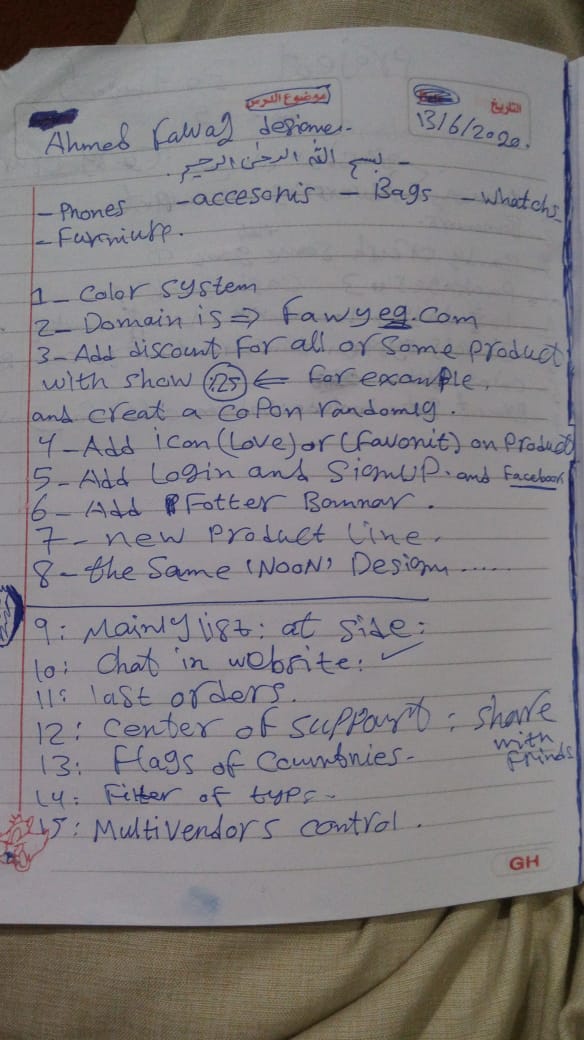 موضوع الدرس
التاريخ
Ahmed Fawaz designer.
13/6/2020.
بسم الله الرحمن الرحيم -
- Phones - accesoris - Bags - whatchs
- Furniure.
1- Color system
2- Domain is => Fawyeg.com
3- Add discount for all or some product
with show %25 <= for example,
and creat a copon randomly.
4- Add icon (Love) or (favorit) on Product
5- Add Login and SignUP. and Facebook
6- Add Fotter Bannar.
7- new Product Line.
8- the Same 'NOON' Design......
9: Mainly list: at side:
10: Chat in website: ✓
11: last orders.
12: Center of support: share
with
frinds
13: Flags of Countries-
14: Filter of type-
15: Multivendors control.
GH